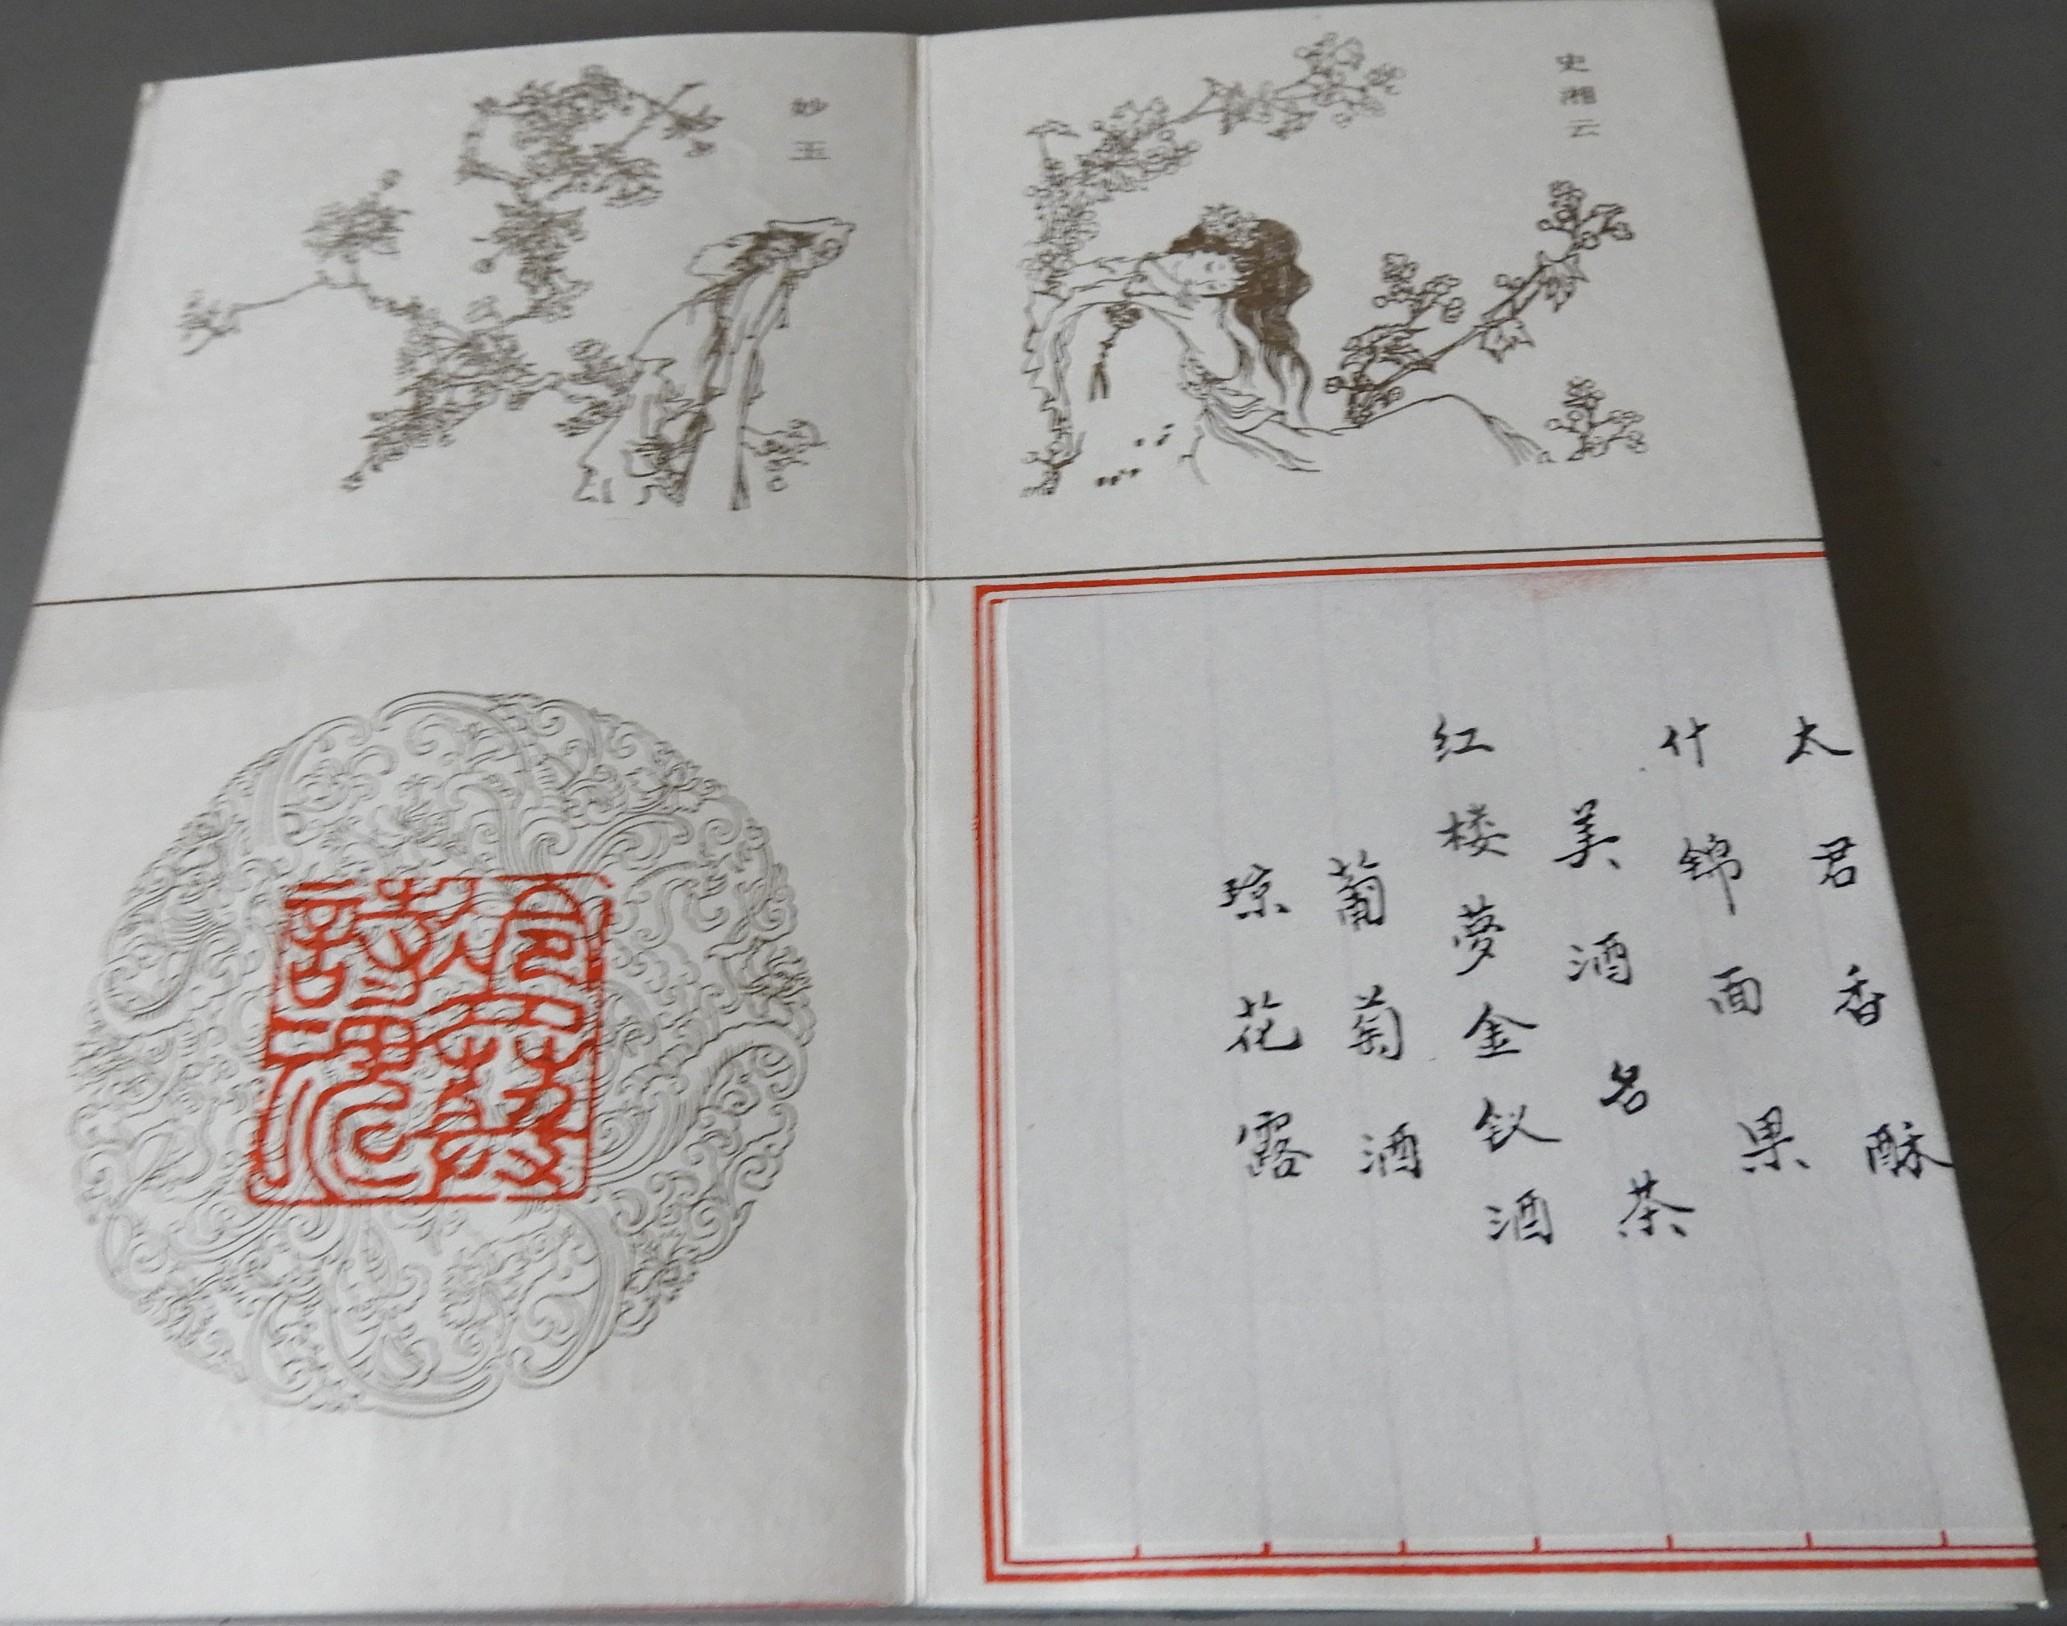 史湘云
妙玉
太君香酥
什锦面果
美酒名茶
红楼夢金钗酒
葡萄酒
琼花露